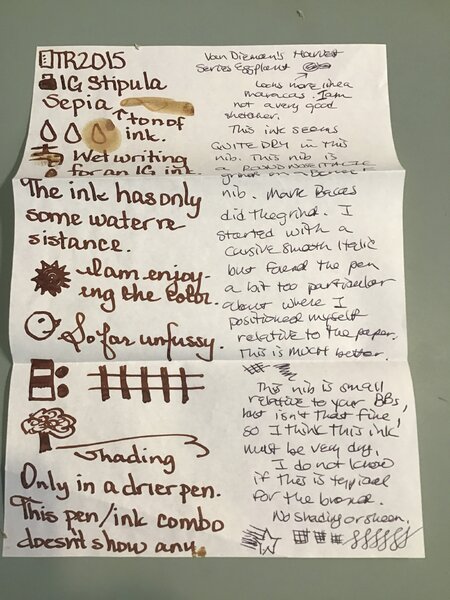 TR2015
IG Stipula
Sepia
ton of
ink.
Wet writing
for an IG ink
The ink has only
some water re
sistance.
I am enjoy-
ing the color.
So far unfussy.
Shading
Only in a drier pen.
This pen/ink combo
doesn't show any
Van Dieman's Harvest
Series Eggplant
Looks more like a
maracas. I am
not a very good
sketcher.
This ink seems
QUITE DRY in this
nib. This nib is
a
nib. Mark Bacas
did the grind. I
started with a
cursive smooth italic
but found the pen
a bit too particular
about where I
positioned myself
relative to the paper.
This is much better.
This nib is small
relative to your BBs,
but isn't that fine,
so I think this ink
must be very dry.
I do not know
if this is typical
for the brand.
No shading or sheen.